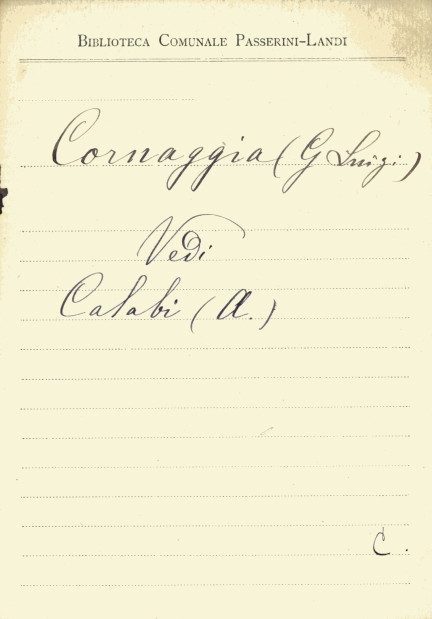 BIBLIOTECA COMUNALE PASSERINI-LANDI
Cornaggia (G Luigi)
Vedi
Calabi (A.)
C.